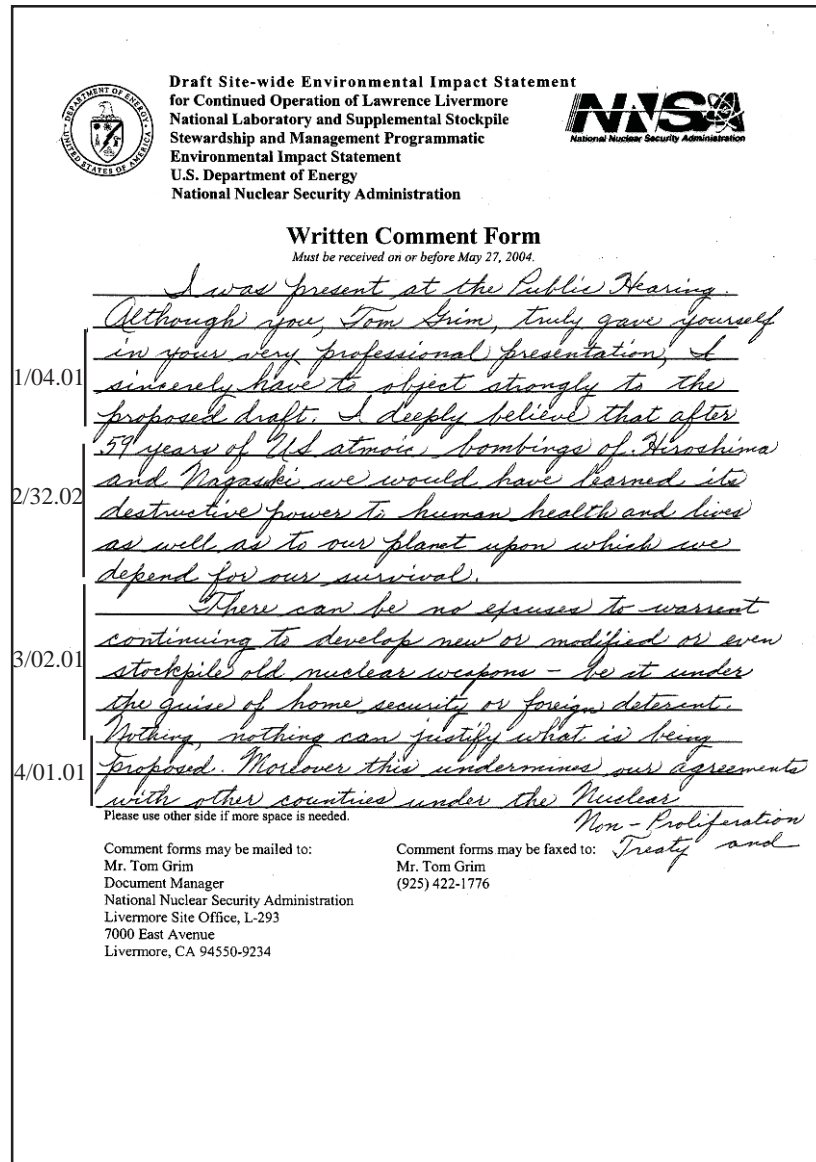 DEPARTMENT OF ENERGY
UNITED STATES OF AMERICA
Draft Site-wide Environmental Impact Statement
for Continued Operation of Lawrence Livermore
National Laboratory and Supplemental Stockpile
Stewardship and Management Programmatic
Environmental Impact Statement
U.S. Department of Energy
National Nuclear Security Administration
NNSA
National Nuclear Security Administration
Written Comment Form
Must be received on or before May 27, 2004.
I was present at the Public Hearing.
Although you, Tom Grim, truly gave yourself
1/04.01 in your very professional presentation, I
sincerely have to object strongly to the
proposed draft. I deeply believe that after
2/32.02 59 years of US atmoic bombings of Hiroshima
and Nagaski we would have learned its
destructive power to human health and lives
as well as to our planet upon which we
depend for our survival.
3/02.01 There can be no excuses to warrent
continuing to develop new or modified or even
stockpile old nuclear weapons - be it under
the guise of home security or foreign deterent.
Nothing, nothing can justify what is being
4/01.01 proposed. Moreover this undermines our agreements
with other countries under the Nuclear
Non-Proliferation
Treaty and
Please use other side if more space is needed.
Comment forms may be mailed to:
Mr. Tom Grim
Document Manager
National Nuclear Security Administration
Livermore Site Office, L-293
7000 East Avenue
Livermore, CA 94550-9234
Comment forms may be faxed to:
Mr. Tom Grim
(925) 422-1776